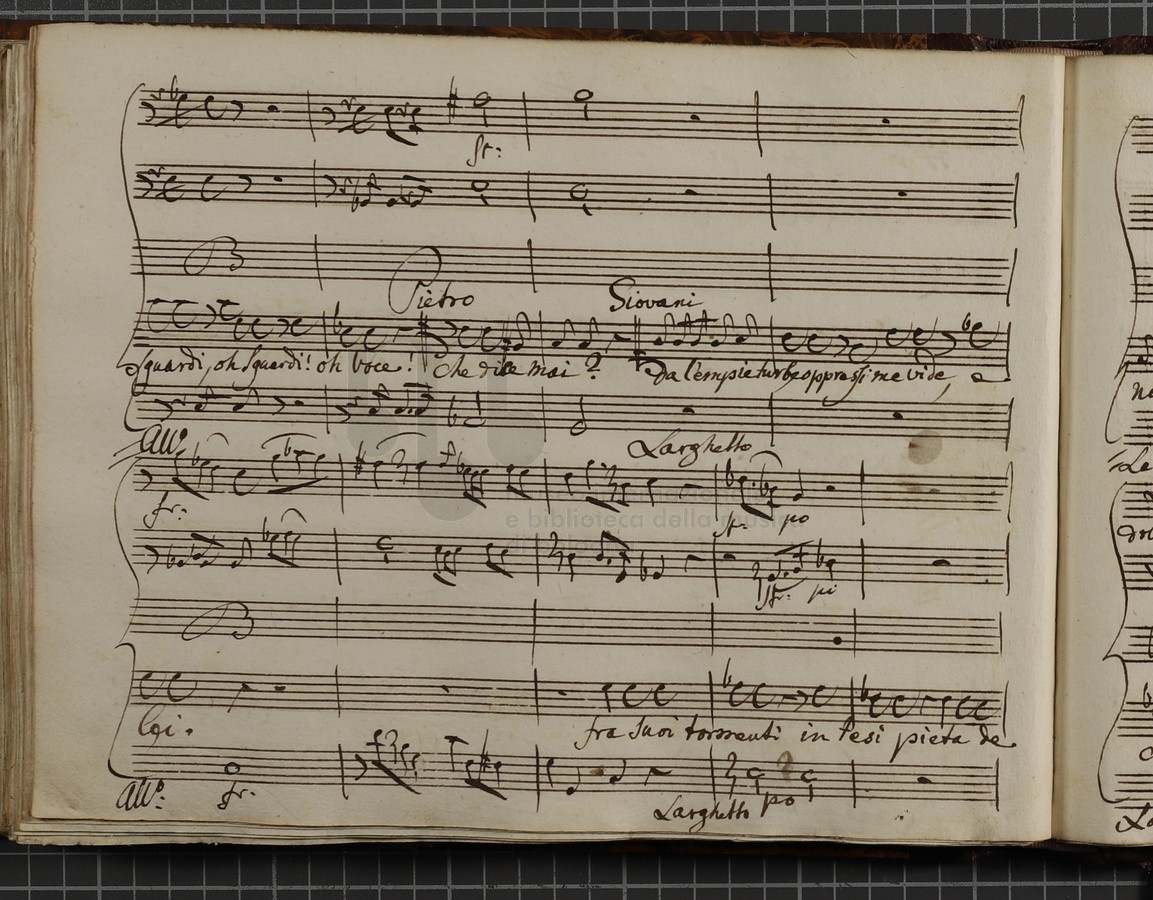 fr:
Pietro Giovani
Sguardi, oh Sguardi! oh voce! che dice mai? Da l'empie turbe oppresso me vide, e
Allo: Larghetto
fr: fr: po
fr: pi
lei. fra Suoi tormenti in tesi pieta de
Allo: fr: Larghetto po
e biblioteca della musica